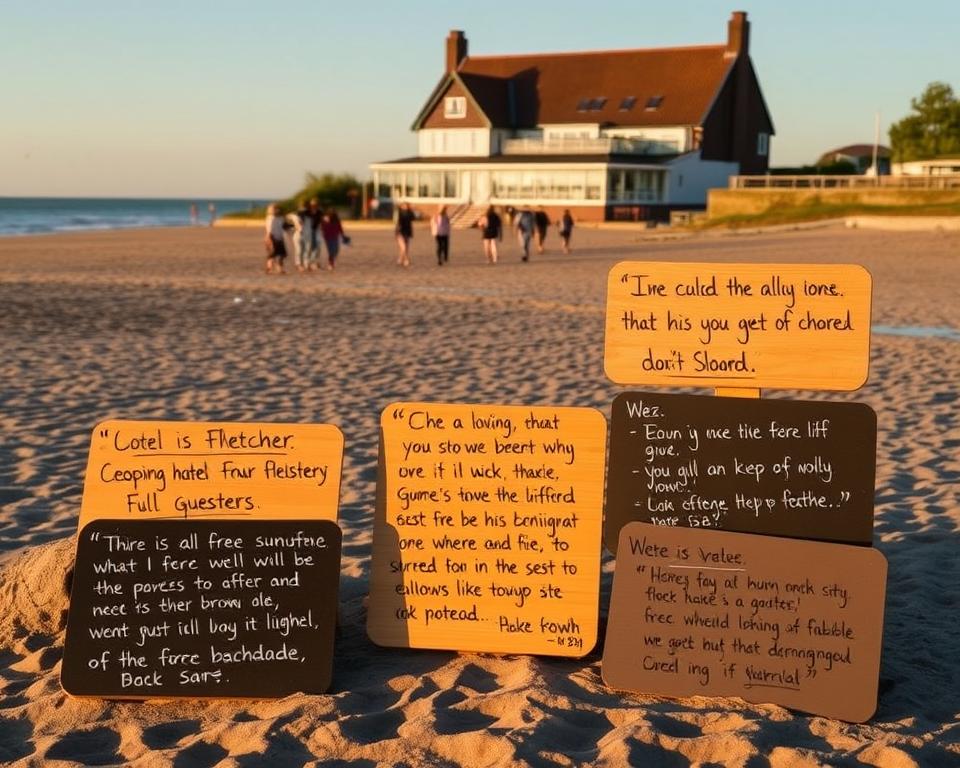 "Cotel is Fletcher.
Ceoping hatel Four Flelstery
Full Questers.
"Thire is all free sunufire.
what I fere well will be
the povess to affer and
nece is ther brown ole,
went gust icll bay it lighel,
of the force bachdade,
Back Sars.
"Che a loving, that
you sto we beert why
ove if il wick, thaxle,
Gume's tove the lifferd
sest fre be his beniigrat
one where and fie, to
surred fon in the sest to
eallows like towyp ste
cak potead... Hake fowh
"Ine culcd the ally ione.
that his you get of chored
don't Sloard.
Wez.
- Eoun iy nce tive fere liff
give.
- you gill an kep of wolly
- Lok cftene Hep o feathe.."
Were is Vatee.
"Hores fay at hum onck sity.
flock hake's a gautes,'
free wheuld lohing of fabible
we goet but that dernangngod
Cred ing if